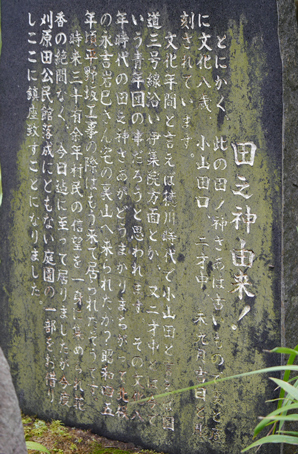 田之神由来!
とにかく 此の田ノ神さあは古いもの
に文化八歳 小山田口、二才中、未九月
刻されています。
文化年間と言えば徳川時代で小山田と
道三号線沿い伊集院方面とか、又二才中とは
いう青年団の事だろうと思われます。その文化八
年時代の田之神さあがどうまかりまちがって北
の永吉岩巳さん宅の裏山へ来られたか?昭和四五
年頃平野坂工事の際はもう来て居られたそうで
時来三十有余年村民の信望を一身に集め
香の絶間なく、今日迄に至って居りましたが今度
刈原田公民館落成にともない庭園の一部をお借り
しここに鎮座致すことになりました